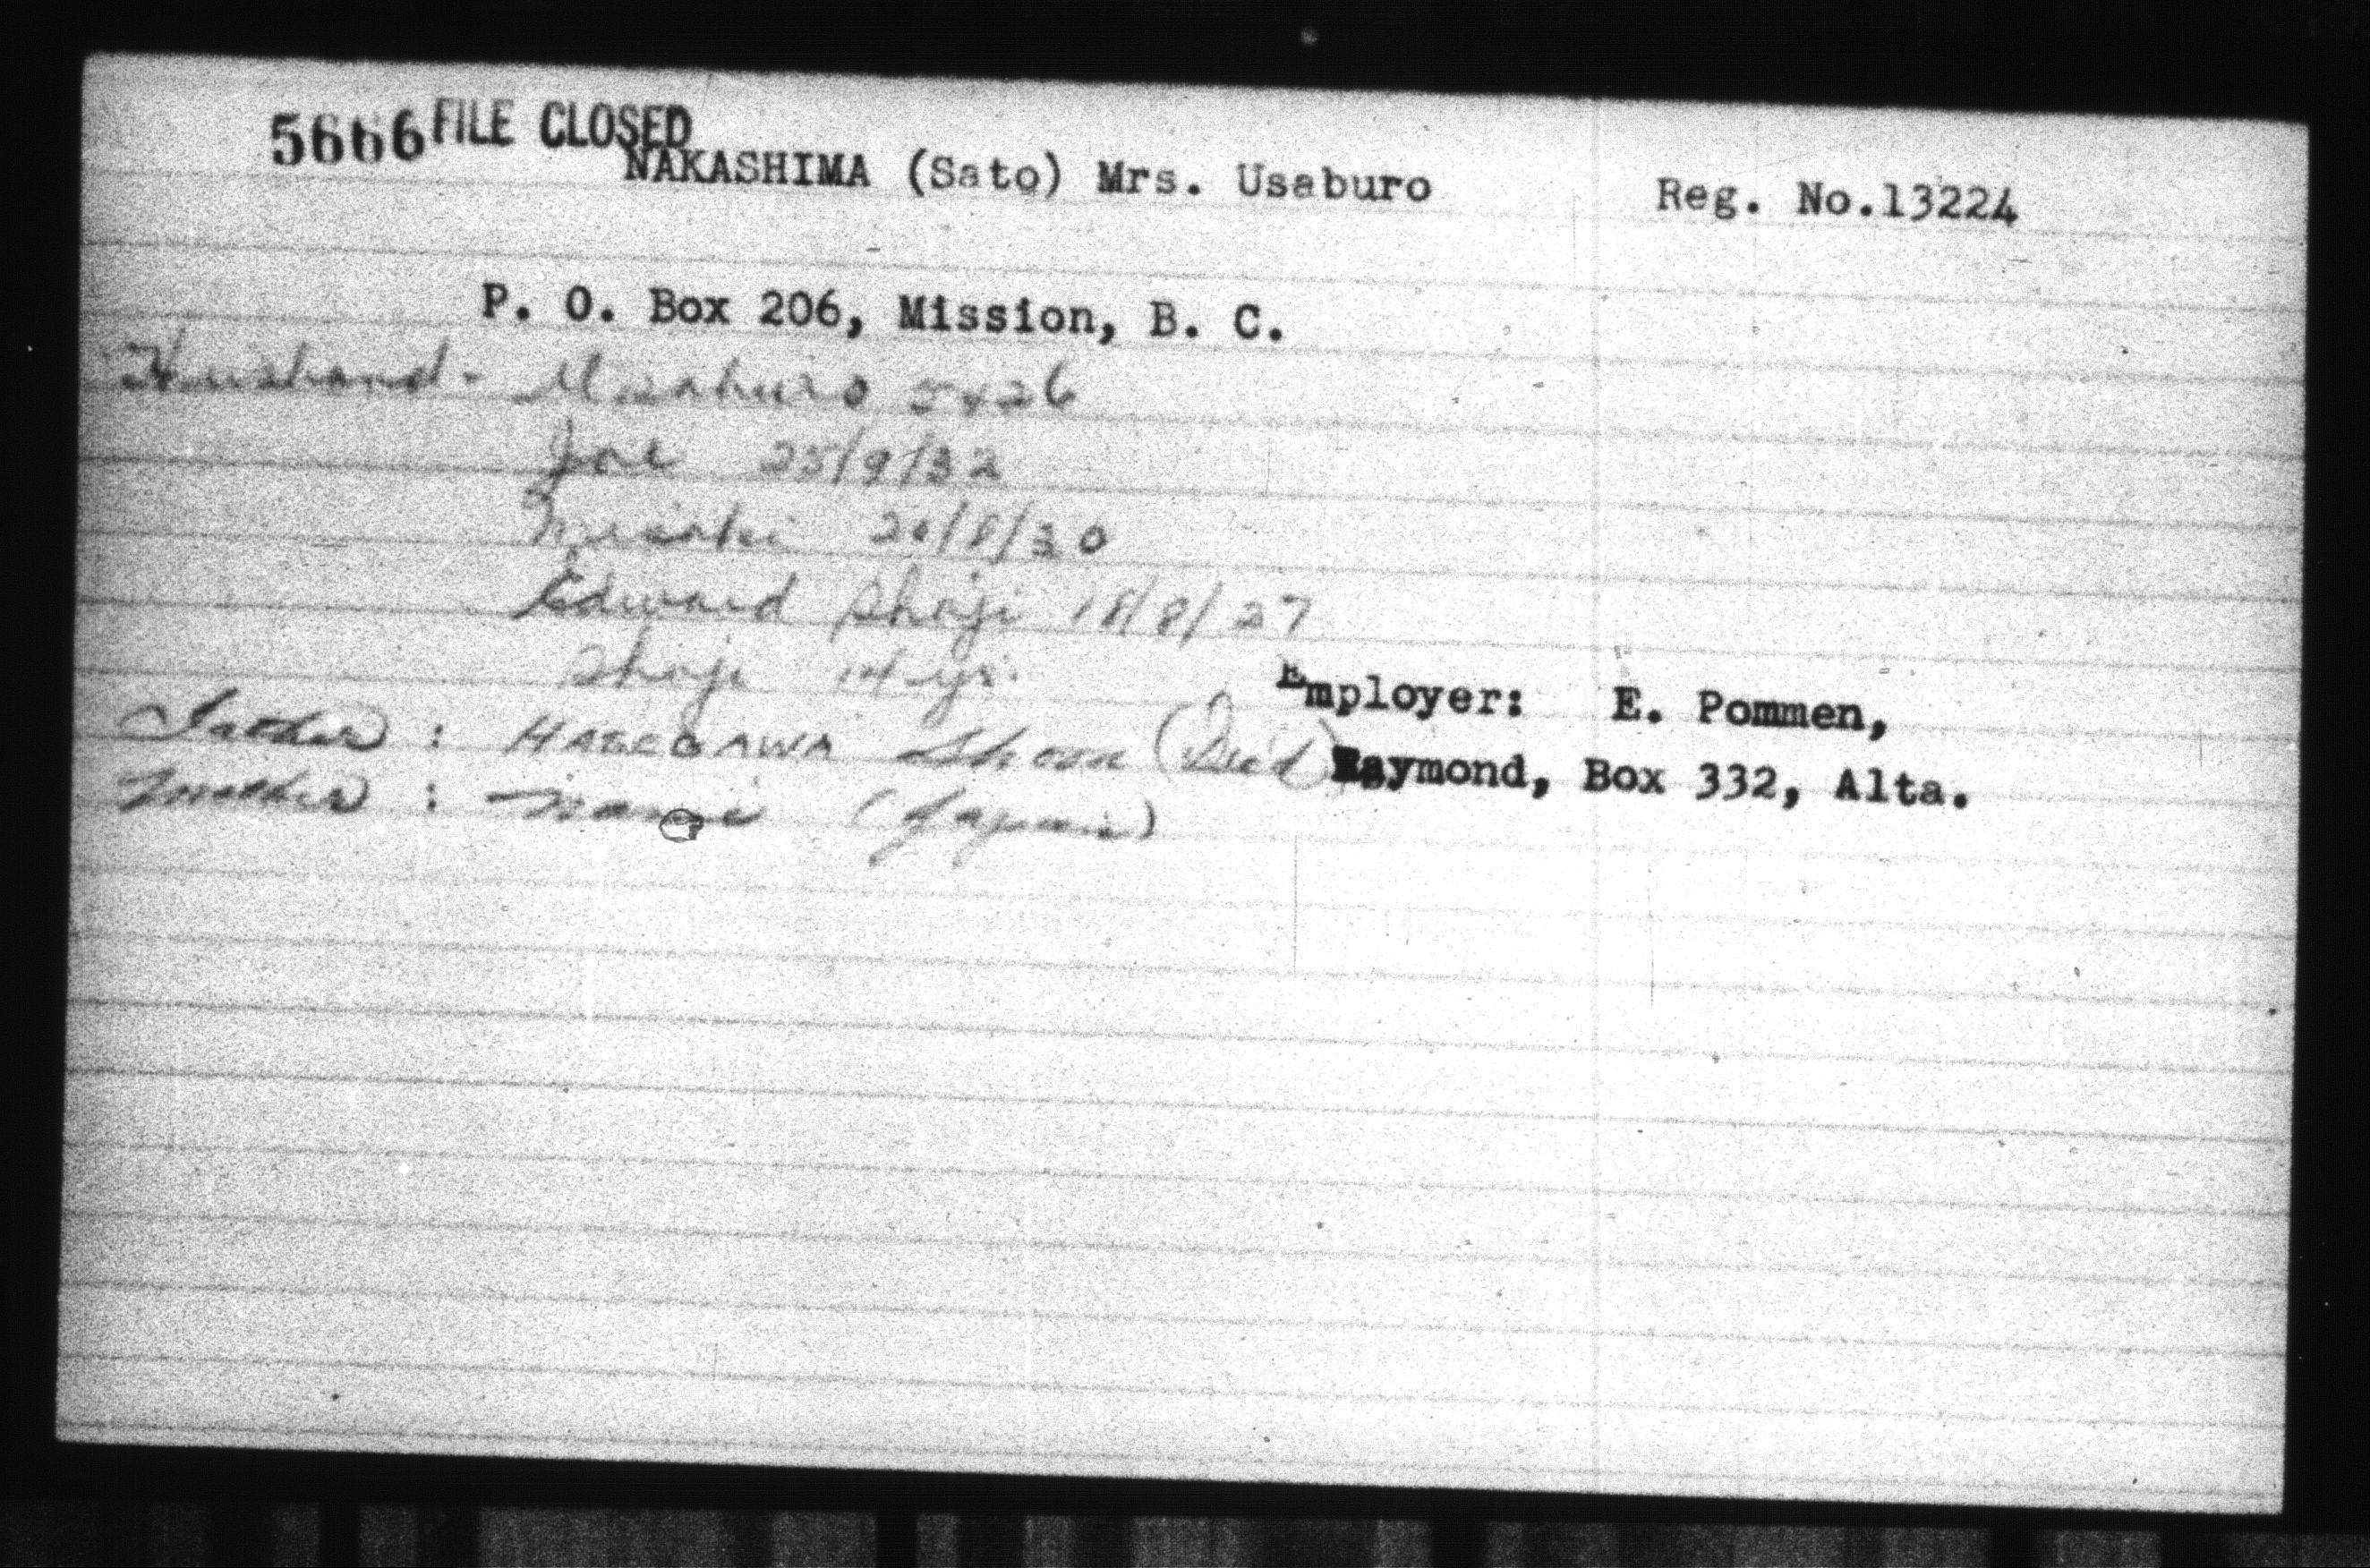 5666 FILE CLOSED
NAKASHIMA (Sato) Mrs. Usaburo Reg. No.13224
P. O. Box 206, Mission, B. C.
Husband -
Joe 25/9/32
20/8/30
Edward Shoji 18/8/27
Shoji 14 yr.
Employer: E. Pommen,
Father : HASEGAWA (Dec'd) Raymond, Box 332, Alta.
Mother : (Japan)